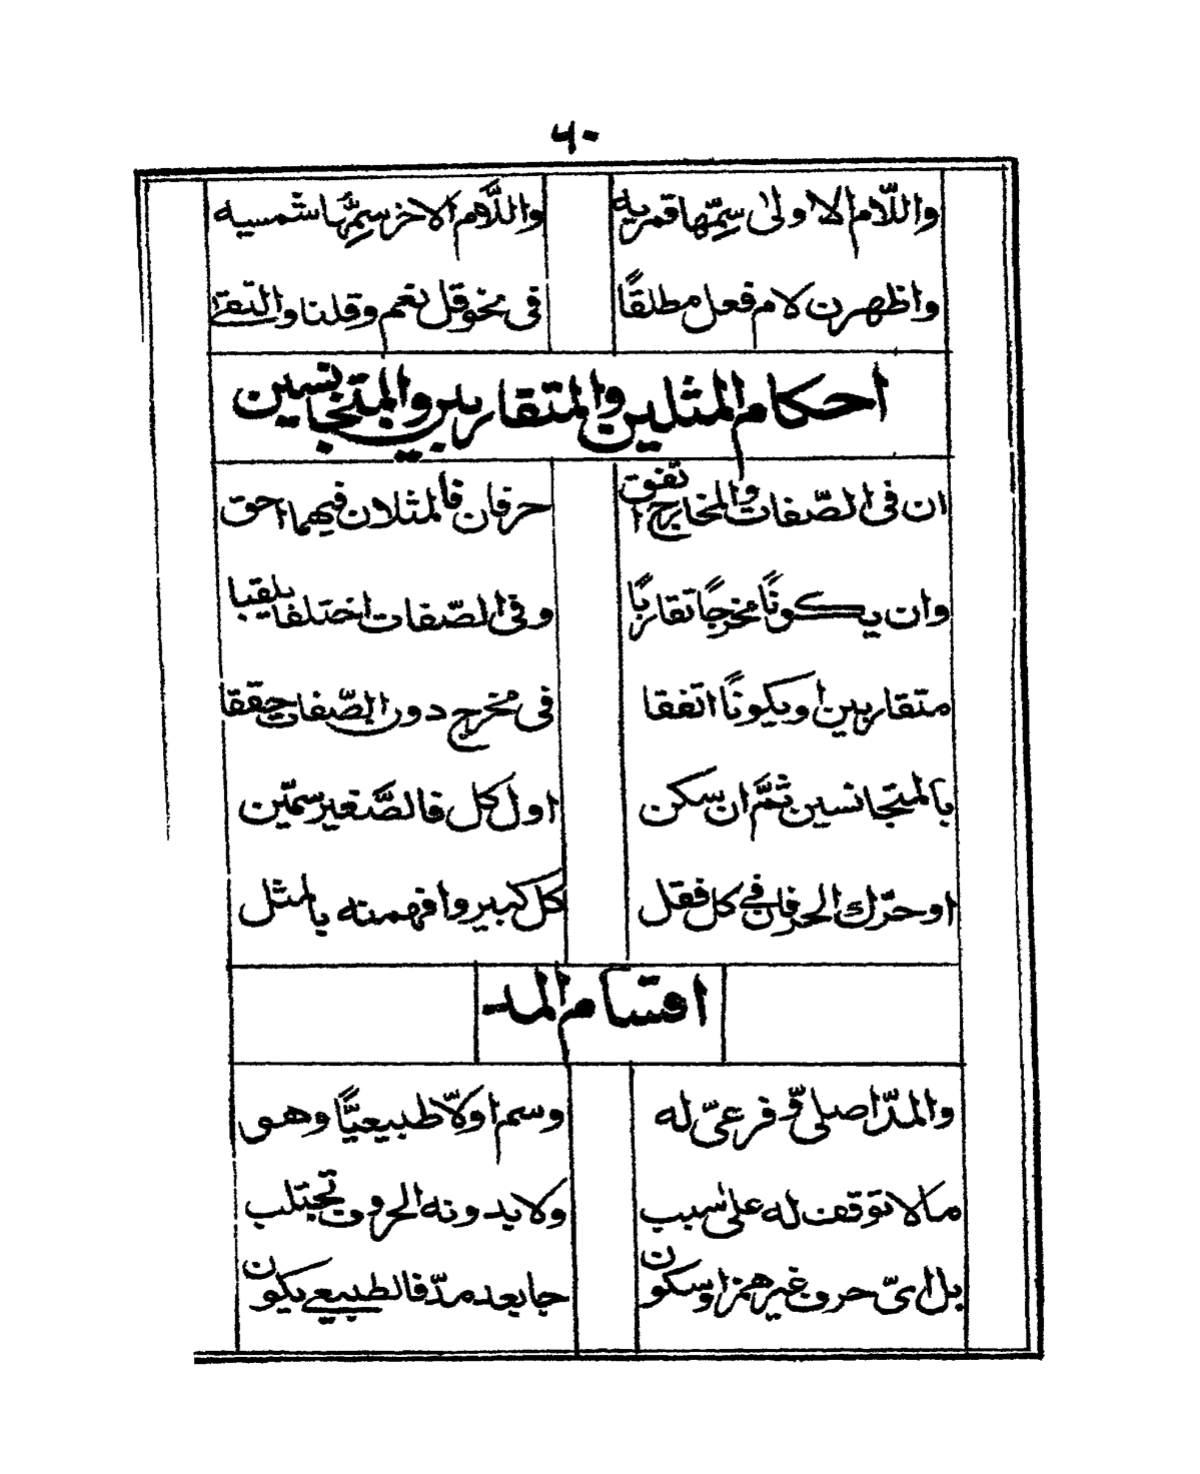 ٦٠
واللّام الاولیٰ سِمِّها قمریه واللَّام الاخرٰ سِمِّها شمسیه
واظهرن لام فعل مطلقًا فی نحو قل نعم وقلنا والتقیٰ
احکام المثلین والمتقاربین والمتجانسین
ان فی الصّفات والمخارج اتفق حرفان فالمثلان فیهما احق
وان یکونًا مخرجًا تقاربًا وفی الصّفات اختلفا یلقبا
متقاربین او یکونًا اتفقا فی مخرج دون الصّفات حققا
بالمتجانسین ثمَّ ان سکن اول کل فالصَّغیر سمّین
او حرّك الحرفان فی کل فقل کل کبیر وافهمنه بالمثل
اقسام المد
والمدّ اصلیّ و فرعیّ له وسم اولًّا طبیعیًّا وهو
مالا توقف له علیٰ سبب ولا بدونه الحروف تجتلب
بل ایّ حرف غیر همز او سکون جا بعد مدّ فالطبیعی یکون